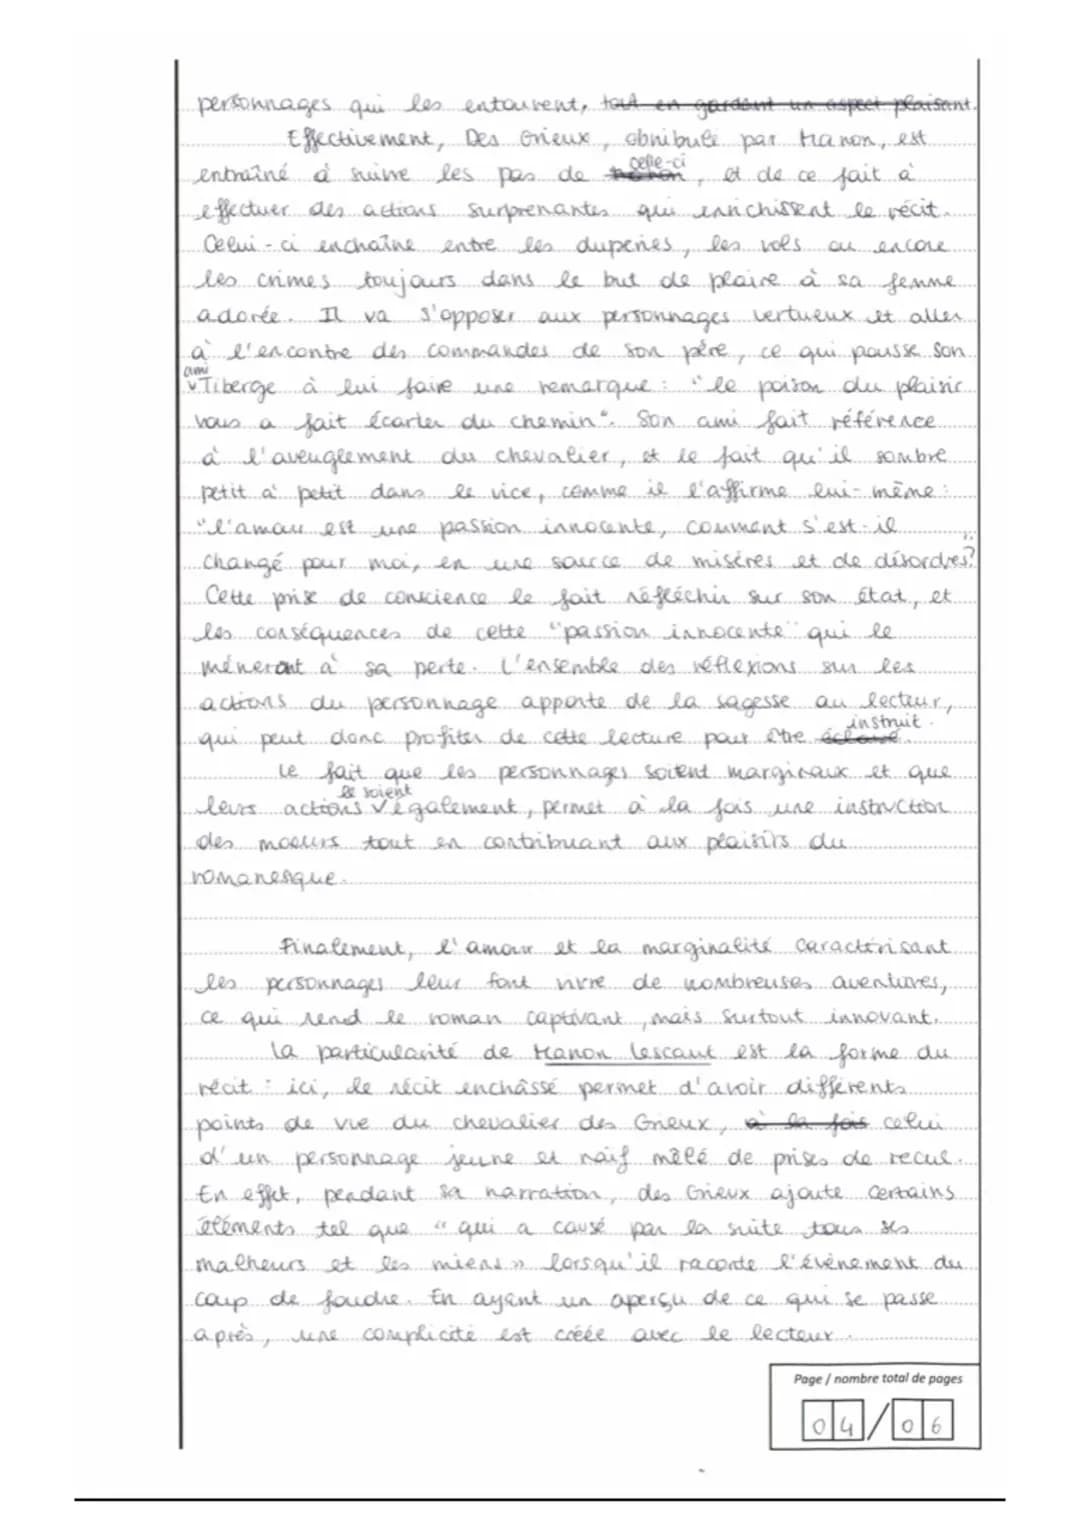 personnages qui les entourent, tout en gardant un aspect plaisant.
Effectivement, Des Grieux, obnibulé par Manon, est
celle-ci
entraîné à suivre les pas de , et de ce fait à
effectuer des actions surprenantes qui enrichissent le récit.
Celui-ci enchaîne entre les duperies, les vols ou encore
les crimes toujours dans le but de plaire à sa femme
adorée. Il va s'opposer aux personnages vertueux et aller
à l'encontre des commandes de son père, ce qui pousse son
ami
Tiberge à lui faire une remarque : "le poison du plaisir
vous a fait écarter du chemin". Son ami fait référence
à l'aveuglement du chevalier, et le fait qu'il sombre
petit à petit dans le vice, comme il l'affirme lui-même :
"l'amour est une passion innocente, comment s'est-il
changé pour moi, en une source de misères et de désordres?"
Cette prise de conscience le fait réfléchir sur son état, et
les conséquences de cette "passion innocente" qui le
mèneront à sa perte. L'ensemble des réflexions sur les
actions du personnage apporte de la sagesse au lecteur,
instruit.
qui peut donc profiter de cette lecture pour être éclairé.
Le fait que les personnages soient marginaux et que
le soient
leurs actions également, permet à la fois une instruction
des moeurs tout en contribuant aux plaisirs du
romanesque.
Finalement, l'amour et la marginalité caractérisant
les personnages leur font vivre de nombreuses aventures,
ce qui rend le roman captivant, mais surtout innovant.
La particularité de Manon Lescaut est la forme du
récit : ici, le récit enchâssé permet d'avoir différents
points de vue du chevalier des Grieux, à la fois celui
d'un personnage jeune et naïf mêlé de prises de recul.
En effet, pendant sa narration, des Grieux ajoute certains
éléments tel que "qui a causé par la suite tous ses
malheurs et les miens" lorsqu'il raconte l'évènement du
coup de foudre. En ayant un aperçu de ce qui se passe
après, une complicité est créée avec le lecteur.
Page / nombre total de pages
04/06